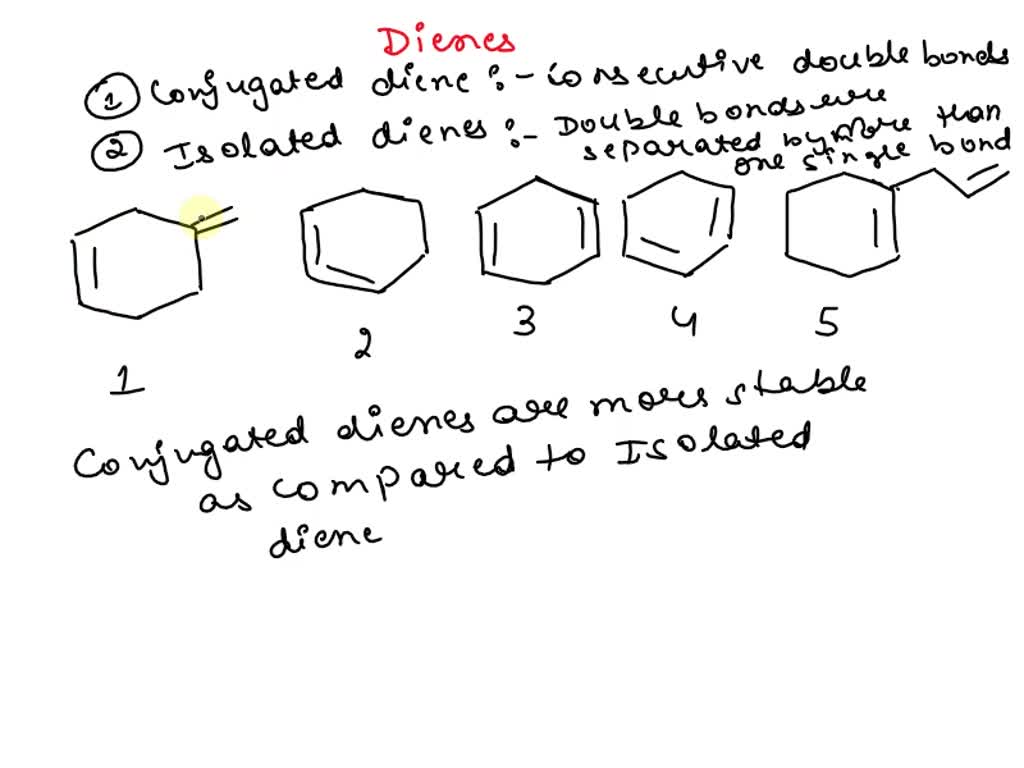 Dienes
① Conjugated diene :- consecutive double bonds
② Isolated dienes :- Double bonds are
separated by more than
one single bond
1
2
3
4
5
Conjugated dienes are more stable
as compared to Isolated
diene